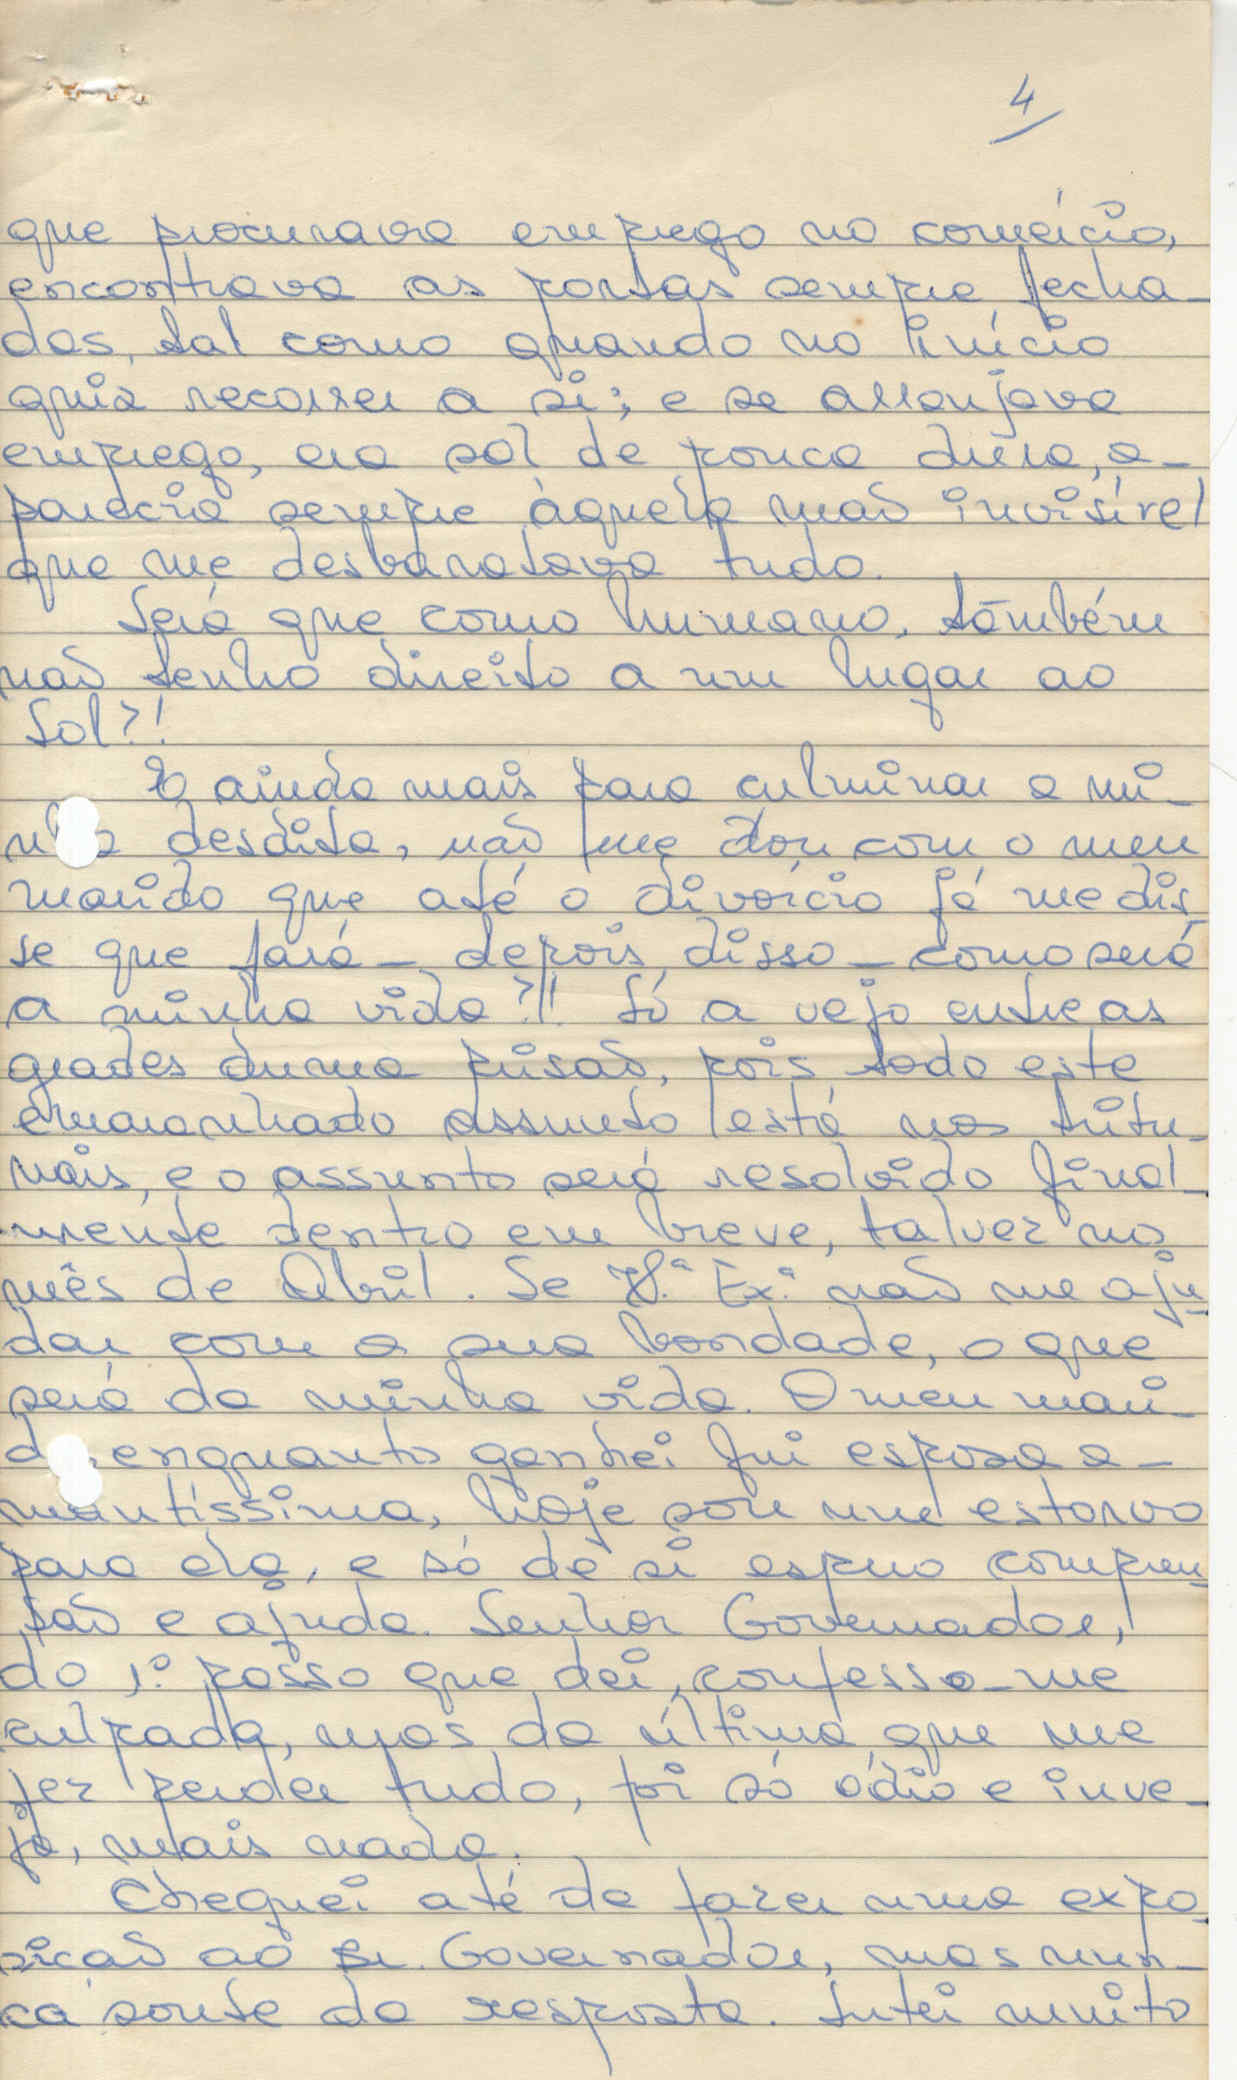 4
que procurava emprego no comércio,
encontrava as portas sempre fecha-
das, tal como quando no início
quis recorrer a si; e se arranjava
emprego, era sol de pouca dura, a-
parecia sempre àquela mão invisível
que me desbaratava tudo.
Será que como humano, tãmbém
não tenho direito a um lugar ao
Sol?!
E ainda mais para culminar a mi-
nha desdita, não me dou com o meu
marido que até o divórcio já me dis-
se que fará - depois disso - como será
a minha vida?!! Só a vejo entre as
grades duma prisão, pois todo este
emaranhado assunto está nos tribu-
nais, e o assunto será resolvido final-
mente dentro em breve, talvez no
mês de Abril. Se V.ª Ex.ª não me aju-
dar com a sua bondade, o que
será da minha vida. O meu mari-
do, enquanto ganhei fui esposa a-
mantíssima, hoje sou um estorvo
para ele, e só de si espero compreen-
são e ajuda. Senhor Governador,
do 1.º passo que dei, confesso-me
culpada, mas da última que me
fez perder tudo, foi só ódio e inve-
ja, mais nada.
Cheguei até de fazer uma expo-
sicão ao Sr. Governador, mas nun-
ca soube da resposta. Lutei muito